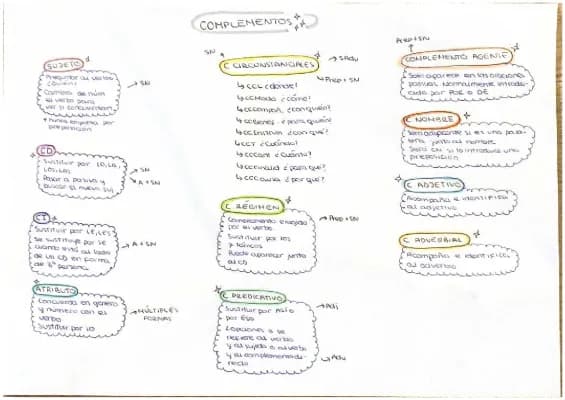 COMPLEMENTOS
SUJETO
Preguntar al verbo
¿Quién?
Cambio de núm
el verbo para
ver si concuerdan
* Nunca empieza por
preposición
→ SN
CD
Sustituir por LO, LA,
LOS, LAS
Pasar a pasiva y
buscar el nuevo SUJ
→ SN
→ A + SN
CI
Sustituir por LE, LES
Se sustituye por SE
cuando está al lado
de un CD en forma
de 3ª persona
→ A + SN
ATRIBUTO
Concuerda en género
y número con el
verbo
Sustituir por LO
→ MÚLTIPLES
FORMAS
SN
C CIRCUNSTANCIALES
→ SAdv
→ Prep + SN
↳ CCL ¿dónde?
↳ CCModo ¿cómo?
↳ CCCompañ. ¿con quién?
↳ CCBenef. ¿para quién?
↳ CCInstrum ¿con qué?
↳ CCT ¿Cuándo?
↳ CCCant ¿Cuánto?
↳ CCFinalid ¿para qué?
↳ CCCausa ¿por qué?
C RÉGIMEN
→ Prep + SN
Complemento exigido
por el verbo
Sustituir por
y tónicos
Puede aparecer junto
al CD
C PREDICATIVO
→ Adj
Sustituir por ASÍ o
por ESO
2 opciones o se
refiere al verbo
y al sujeto o al verbo
y al complemento di-
recto
→ Adv
Prep + SN
COMPLEMENTO AGENTE
Solo aparece en las oraciones
pasivas. Normalmente introdu-
cido por POR o DE
C NOMBRE
Será adyacente si es una pala-
bra junto al nombre
Será CN si lo introduce una
preposición
C ADJETIVO
Acompaña e identifica
al adjetivo
C ADVERBIAL
Acompaña e identifica
al adverbio